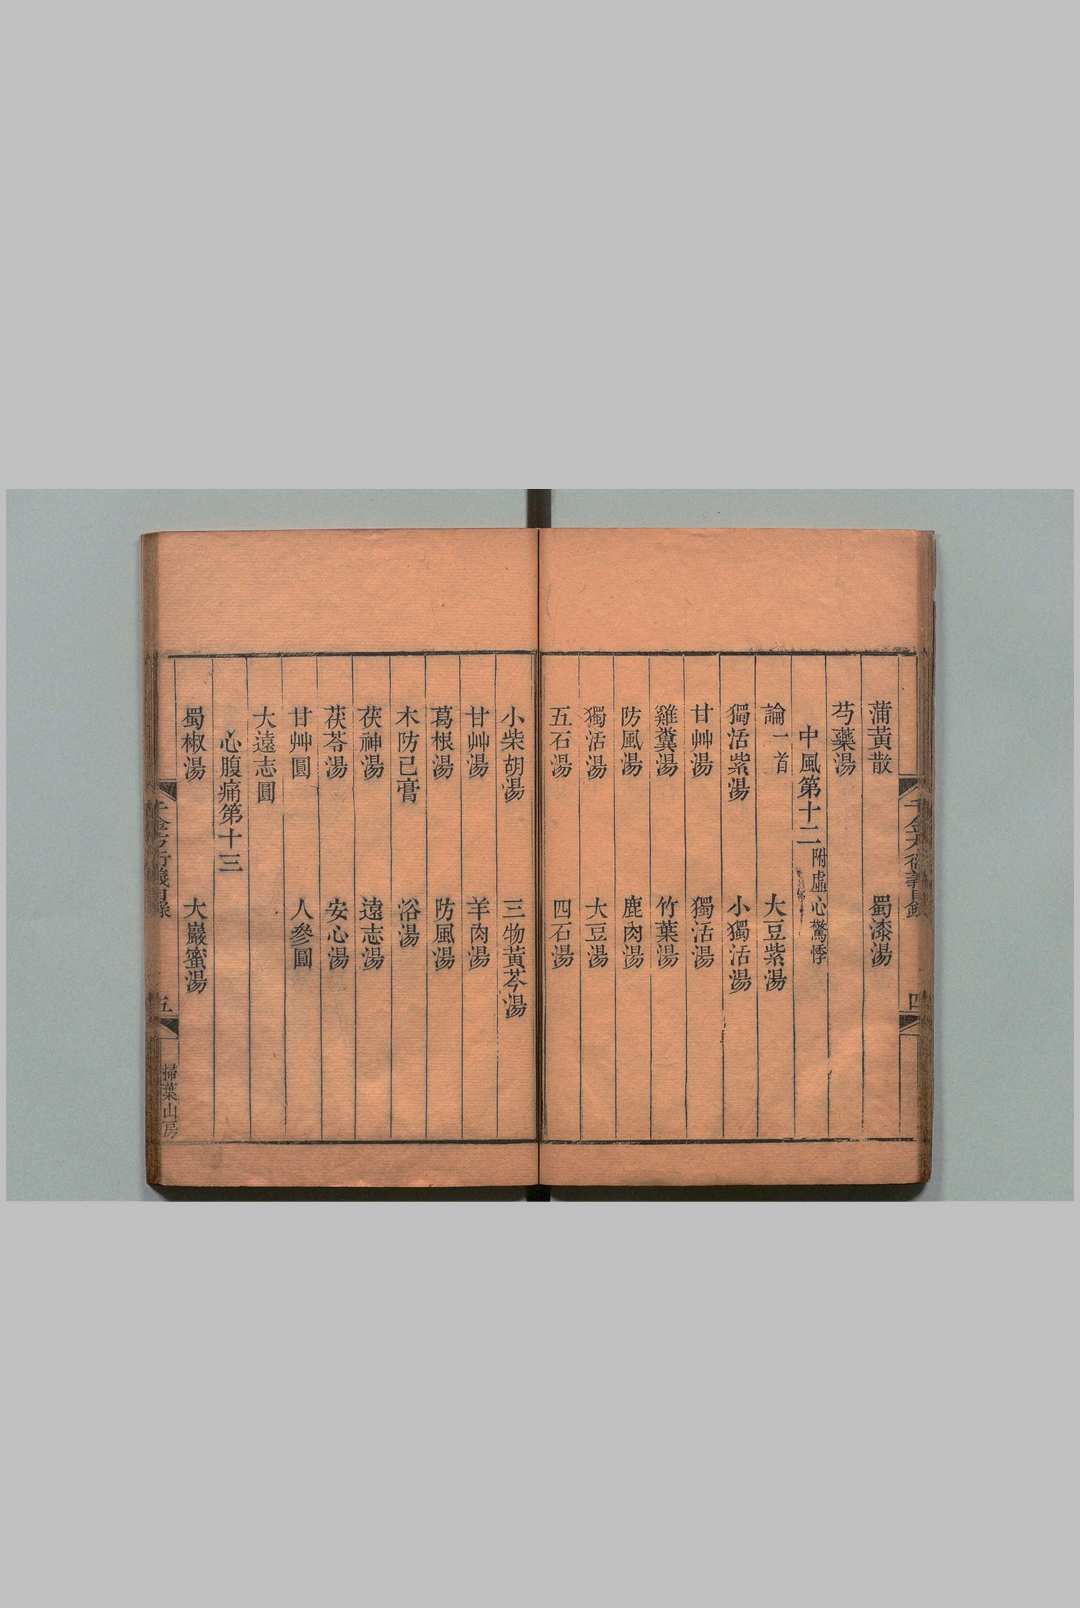 蒲黃散 蜀漆湯
芍藥湯
中風第十二 附虛心驚悸
論一首 大豆紫湯
獨活紫湯 小獨活湯
甘艸湯 獨活湯
雞糞湯 竹葉湯
防風湯 鹿肉湯
獨活湯 大豆湯
五石湯 四石湯
小柴胡湯 三物黃芩湯
甘艸湯 羊肉湯
葛根湯 防風湯
木防己膏 浴湯
茯神湯 遠志湯
茯苓湯 安心湯
甘艸圓 人參圓
大遠志圓
心腹痛第十三
蜀椒湯 大巖蜜湯
千金方衍義目錄 四
千金方衍義目錄 五 掃葉山房